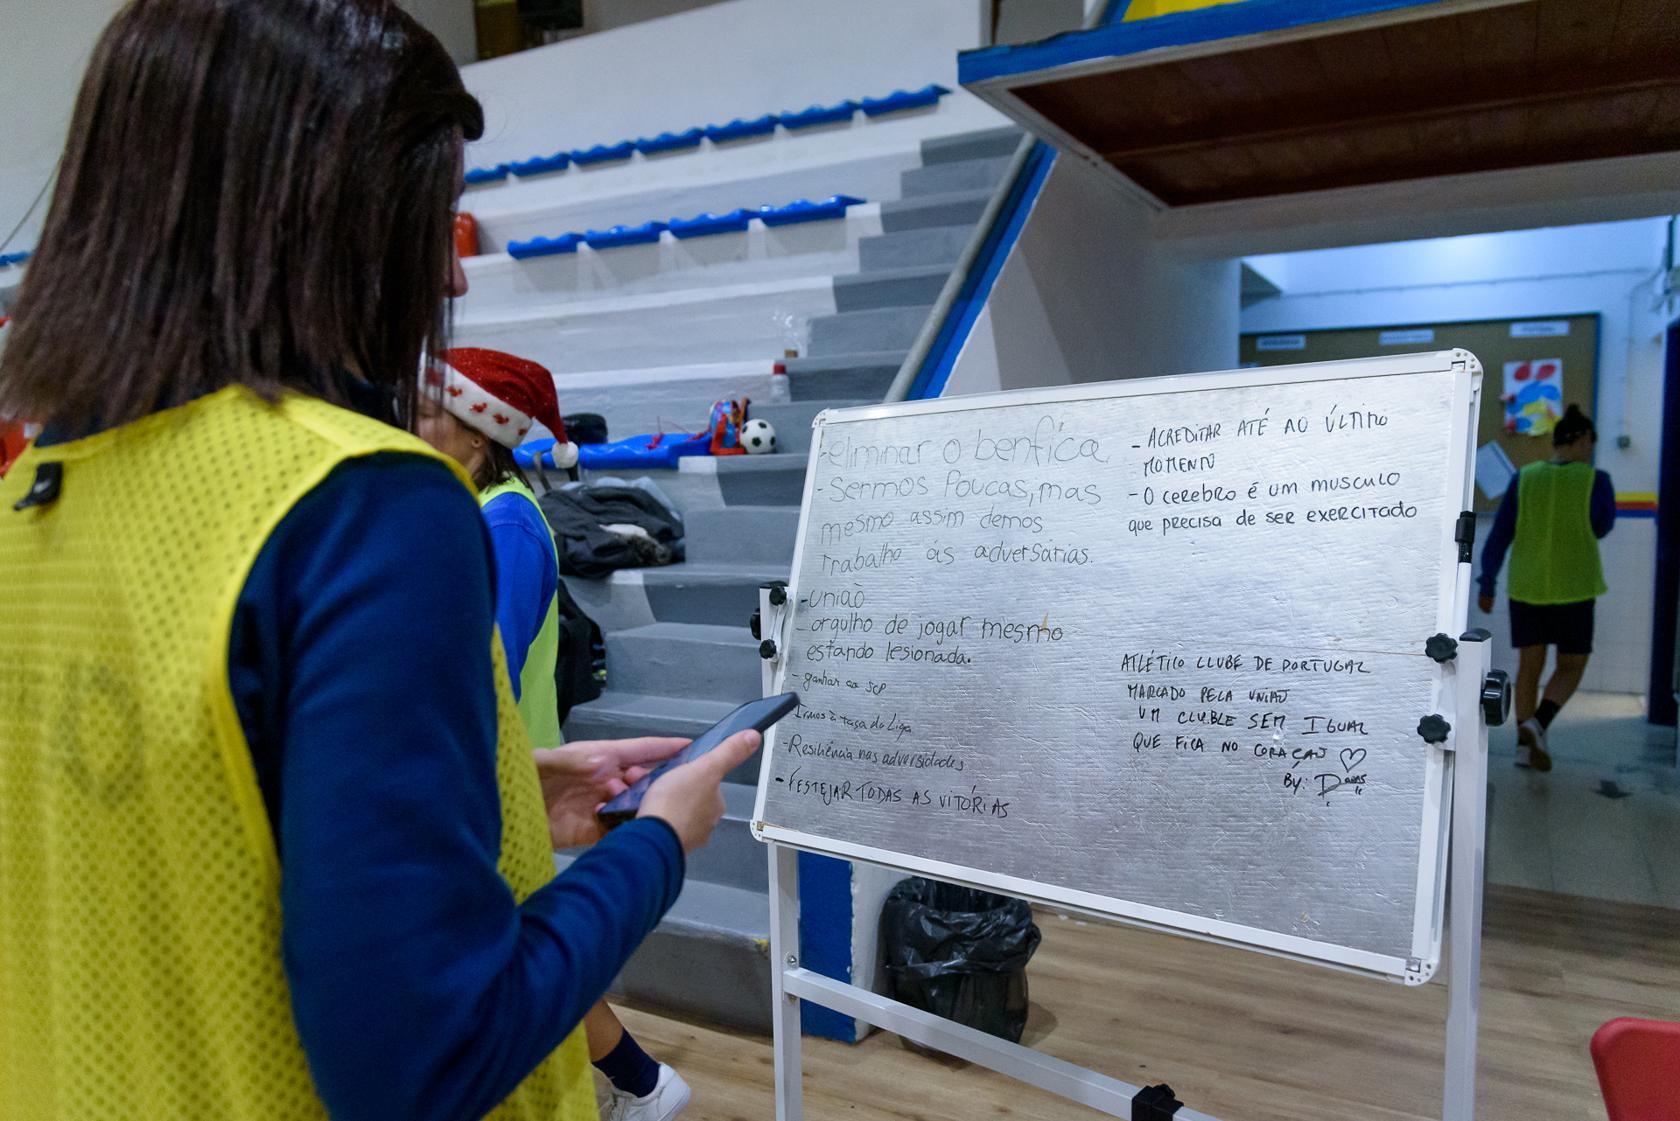 - eliminar o benfica
- Sermos Poucas, mas
mesmo assim demos
trabalho ás adversárias.
- união
- orgulho de jogar mesmo
estando lesionada.
- ganhar ao SCP
- Irmos à tasa da Liga
- Resiliência nas adversidades
- FESTEJAR TODAS AS VITÓRIAS
- ACREDITAR ATÉ AO ÚLTIMO
MOMENTO
- O cerebro é um musculo
que precisa de ser exercitado
ATLÉTICO CLUBE DE PORTUGAL
MARCADO PELA UNIÃO
UM CLUBLE SEM IGUAL
QUE FICA NO CORAÇÃO ♡
By: